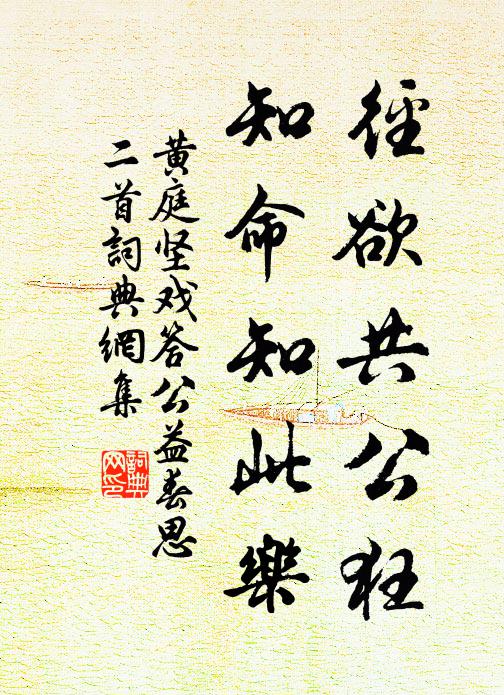 徑欲共公狂
知命知此樂
黄庭坚戏答公益春思
二首詞典網集
詞典
网印